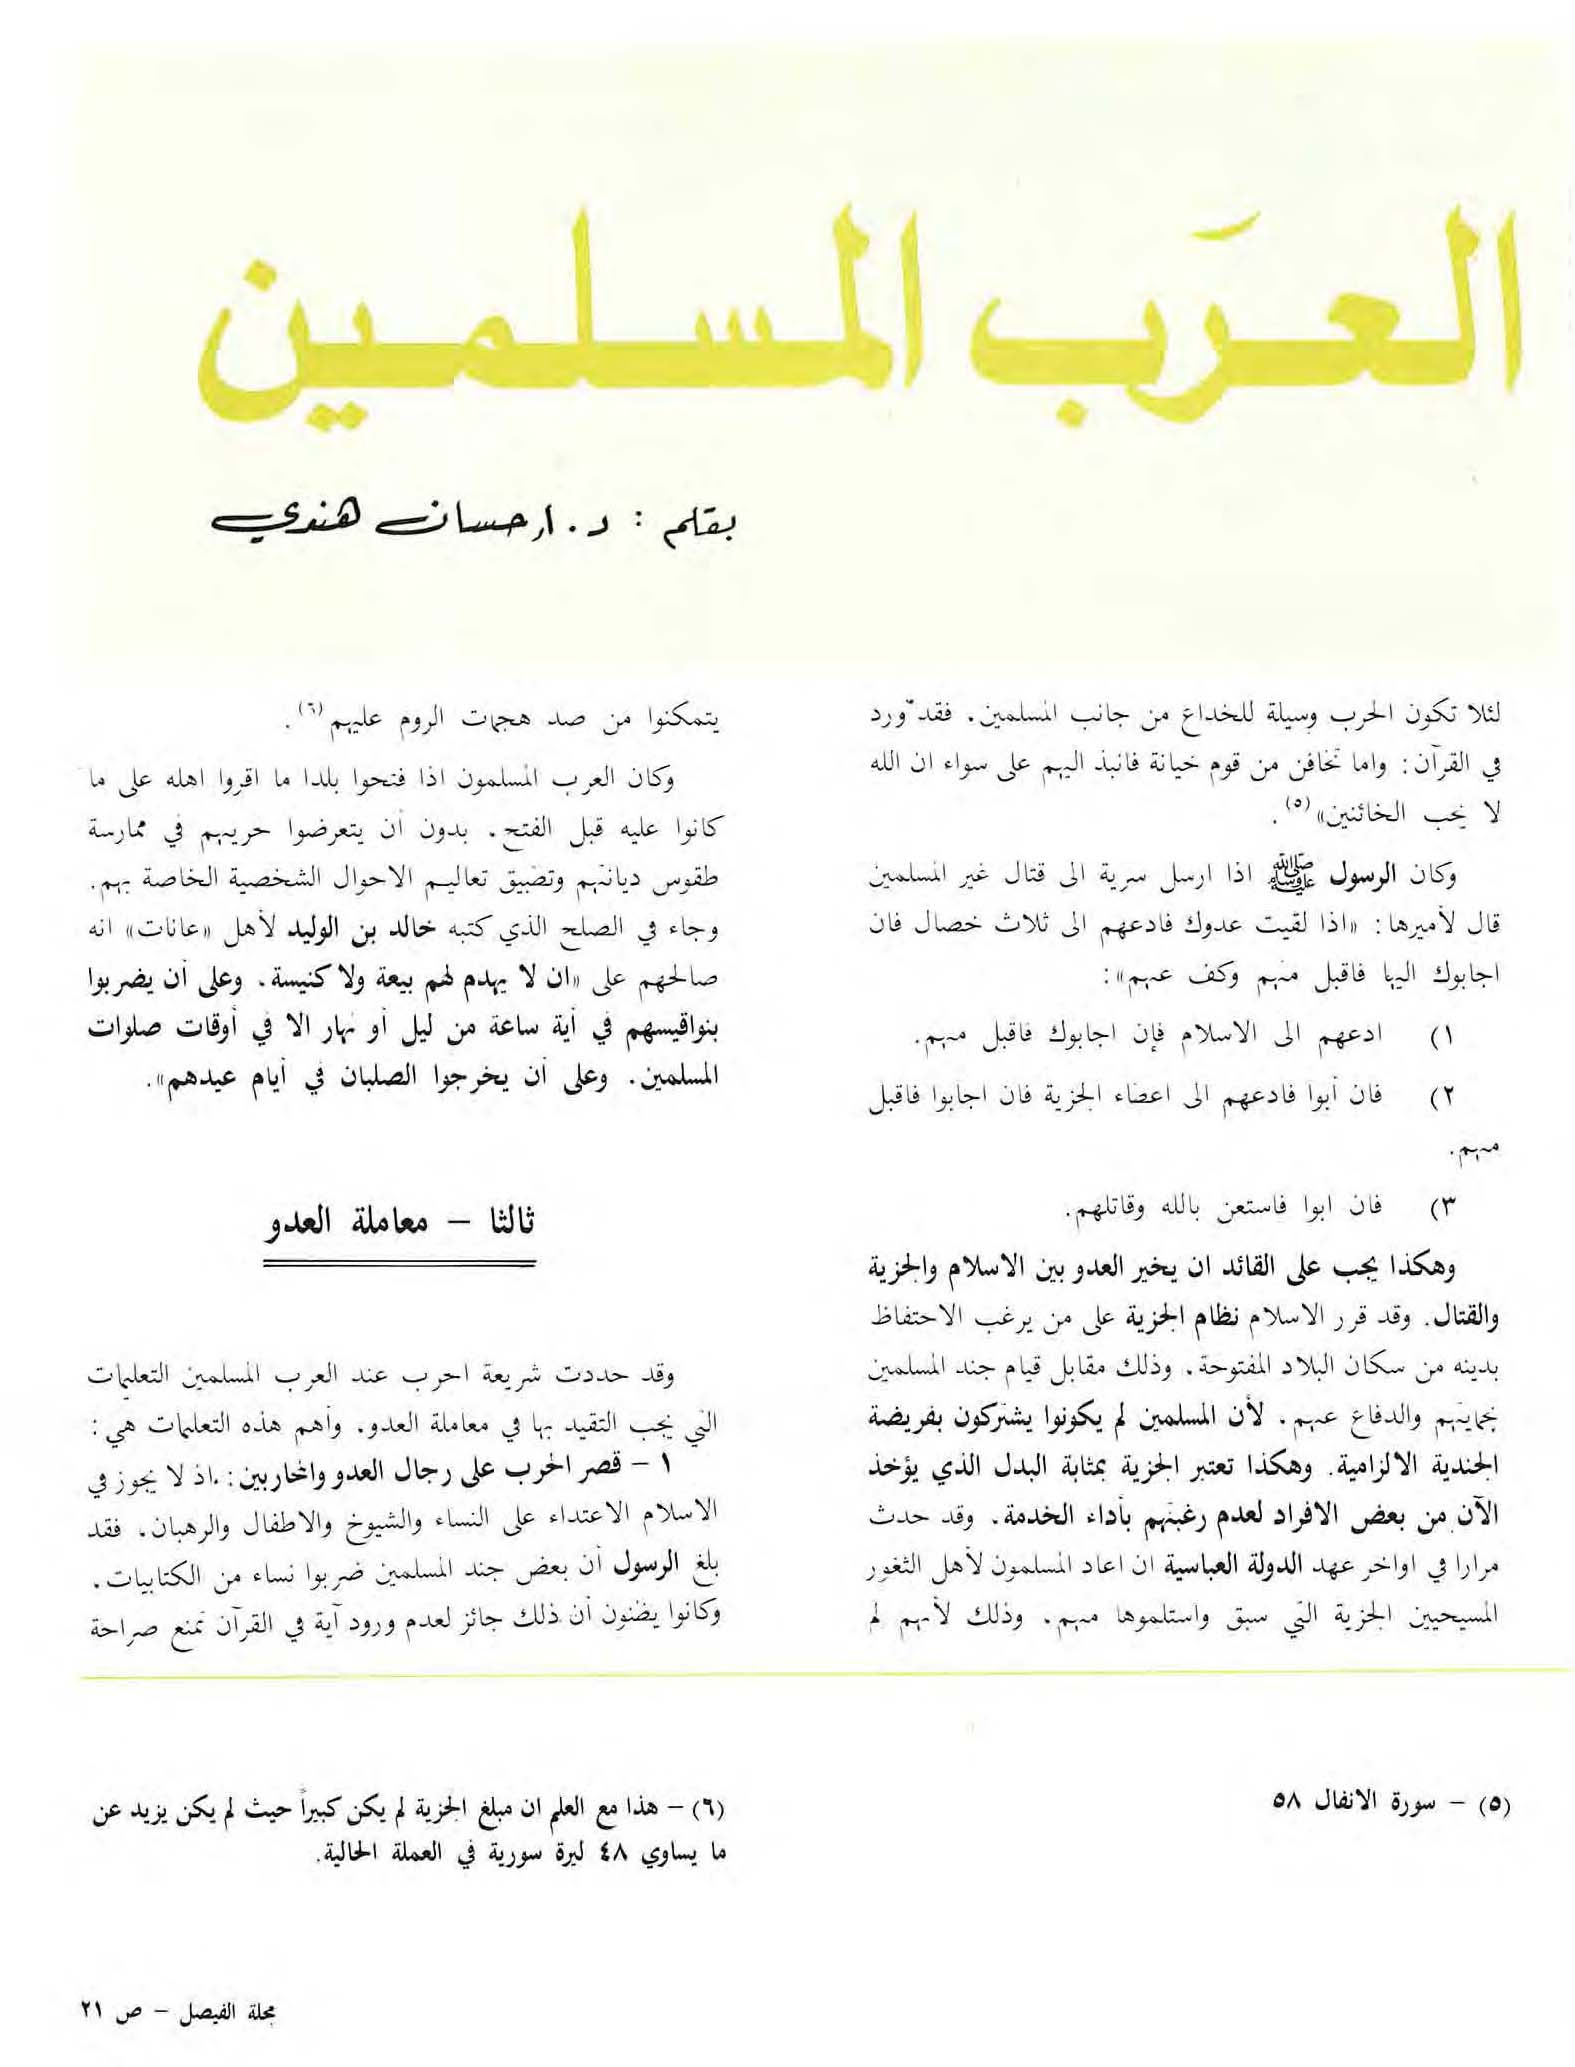 العرب المسلمين
بقلم : د . احسان هندي
لئلا تكون الحرب وسيلة للخداع من جانب المسلمين . فقد ورد
في القرآن : واما تخافن من قوم خيانة فانبذ اليهم على سواء ان الله
لا يحب الخائنين» (٥) .
وكان الرسول ﷺ اذا ارسل سرية الى قتال غير المسلمين
قال لأميرها : «اذا لقيت عدوك فادعهم الى ثلاث خصال فان
اجابوك اليها فاقبل منهم وكف عنهم» :
١) ادعهم الى الاسلام فإن اجابوك فاقبل منهم .
٢) فان أبوا فادعهم الى اعطاء الجزية فان اجابوا فاقبل
منهم .
٣) فان ابوا فاستعن بالله وقاتلهم .
وهكذا يجب على القائد ان يخير العدو بين الاسلام والجزية
والقتال . وقد قرر الاسلام نظام الجزية على من يرغب الاحتفاظ
بدينه من سكان البلاد المفتوحة . وذلك مقابل قيام جند المسلمين
بحمايتهم والدفاع عنهم . لأن المسلمين لم يكونوا يشتركون بفريضة
الجندية الالزامية . وهكذا تعتبر الجزية بمثابة البدل الذي يؤخذ
الآن من بعض الافراد لعدم رغبتهم بأداء الخدمة . وقد حدث
مرارا في اواخر عهد الدولة العباسية ان اعاد المسلمون لأهل الثغور
المسيحيين الجزية التي سبق واستلموها منهم . وذلك لأنهم لم
يتمكنوا من صد هجمات الروم عليهم (٦) .
وكان العرب المسلمون اذا فتحوا بلدا ما اقروا اهله على ما
كانوا عليه قبل الفتح . بدون أن يتعرضوا حريتهم في ممارسة
طقوس ديانتهم وتطبيق تعاليم الاحوال الشخصية الخاصة بهم .
وجاء في الصلح الذي كتبه خالد بن الوليد لأهل «عانات» انه
صالحهم على «ان لا يهدم لهم بيعة ولا كنيسة . وعلى أن يضربوا
بنواقيسهم في أية ساعة من ليل أو نهار الا في أوقات صلوات
المسلمين . وعلى أن يخرجوا الصلبان في أيام عيدهم» .
ثالثا – معاملة العدو
وقد حددت شريعة احرب عند العرب المسلمين التعليمات
التي يجب التقيد بها في معاملة العدو . وأهم هذه التعليمات هي :
١ – قصر الحرب على رجال العدو والمحاربين : اذ لا يجوز في
الاسلام الاعتداء على النساء والشيوخ والاطفال والرهبان . فقد
بلغ الرسول أن بعض جند المسلمين ضربوا نساء من الكتابيات .
وكانوا يظنون أن ذلك جائز لعدم ورود آية في القرآن تمنع صراحة
(٥) – سورة الانفال ٥٨
(٦) – هذا مع العلم ان مبلغ الجزية لم يكن كبيراً حيث لم يكن يزيد عن
ما يساوي ٤٨ ليرة سورية في العملة الحالية .
مجلة الفيصل – ص ٢١